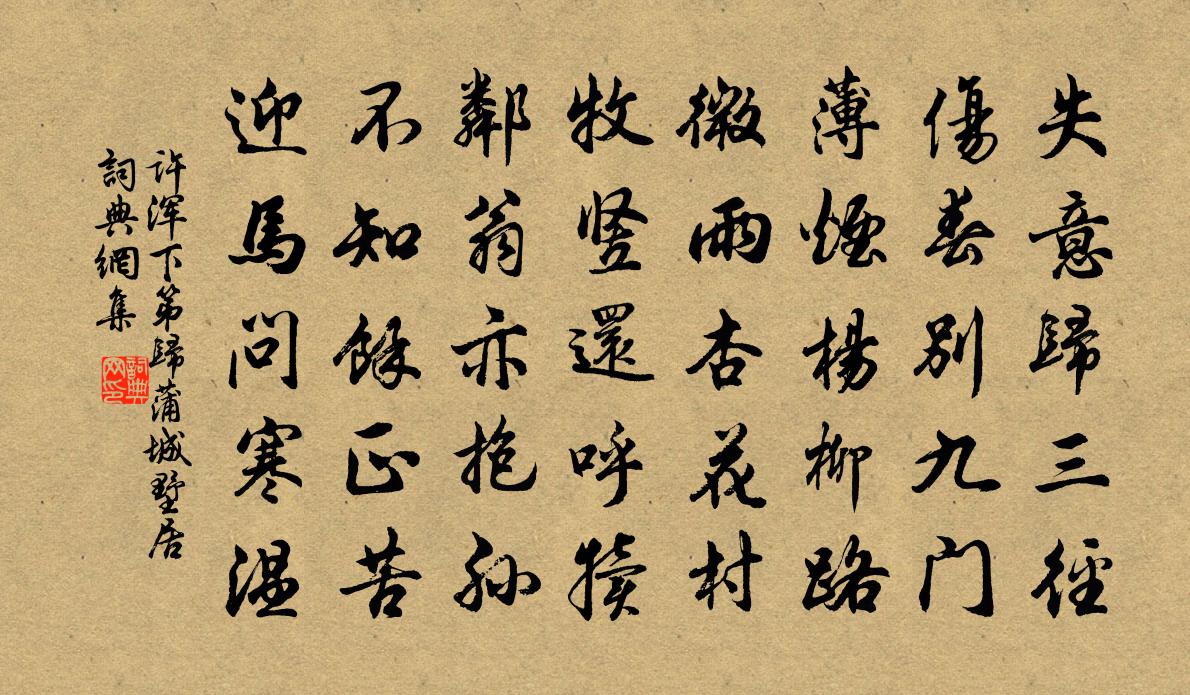 失意歸三徑
傷春別九門
薄煙楊柳路
微雨杏花村
牧豎還呼犢
鄰翁亦抱孫
不知餘正苦
迎馬問寒溫
许浑下第歸蒲城墅居
詞典網集
詞典
网印